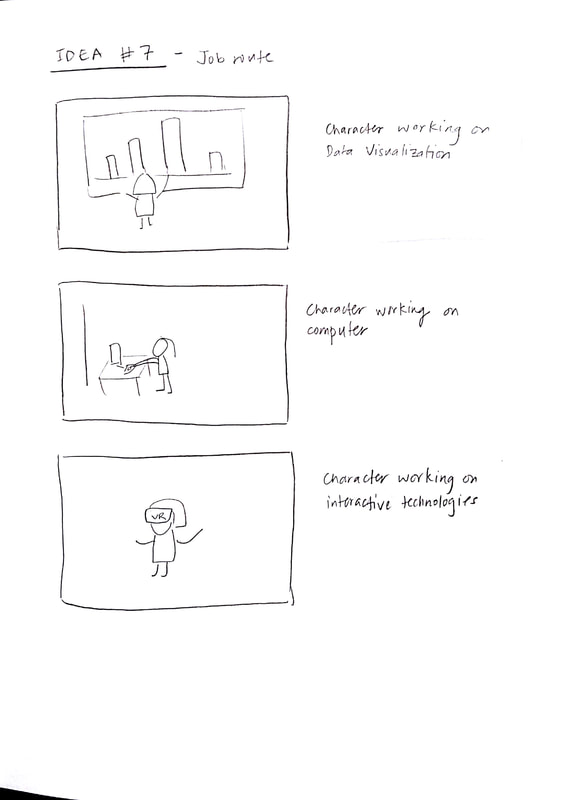 IDEA #7 - Job route
Character working on
Data Visualization
Character working on
computer
VR
Character working on
interactive technologies